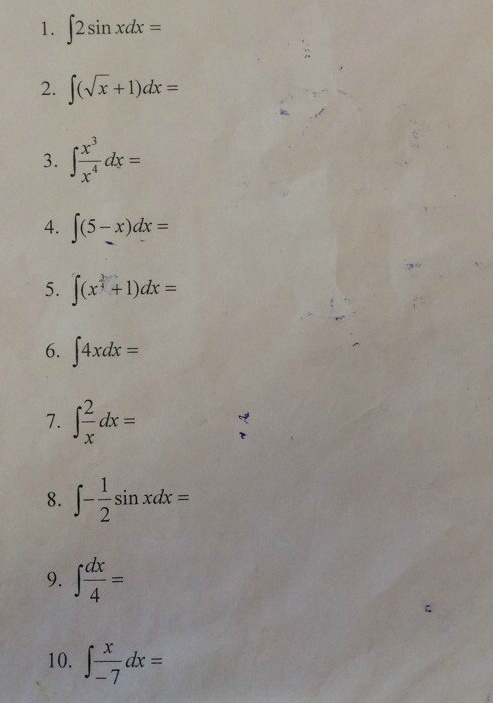 1. ∫2 sin xdx =
2. ∫(√x + 1)dx =
3. ∫x³/x⁴ dx =
4. ∫(5 − x)dx =
5. ∫(x + 1)dx =
6. ∫4xdx =
7. ∫2/x dx =
8. ∫−1/2 sin xdx =
9. ∫dx/4 =
10. ∫x/−7 dx =